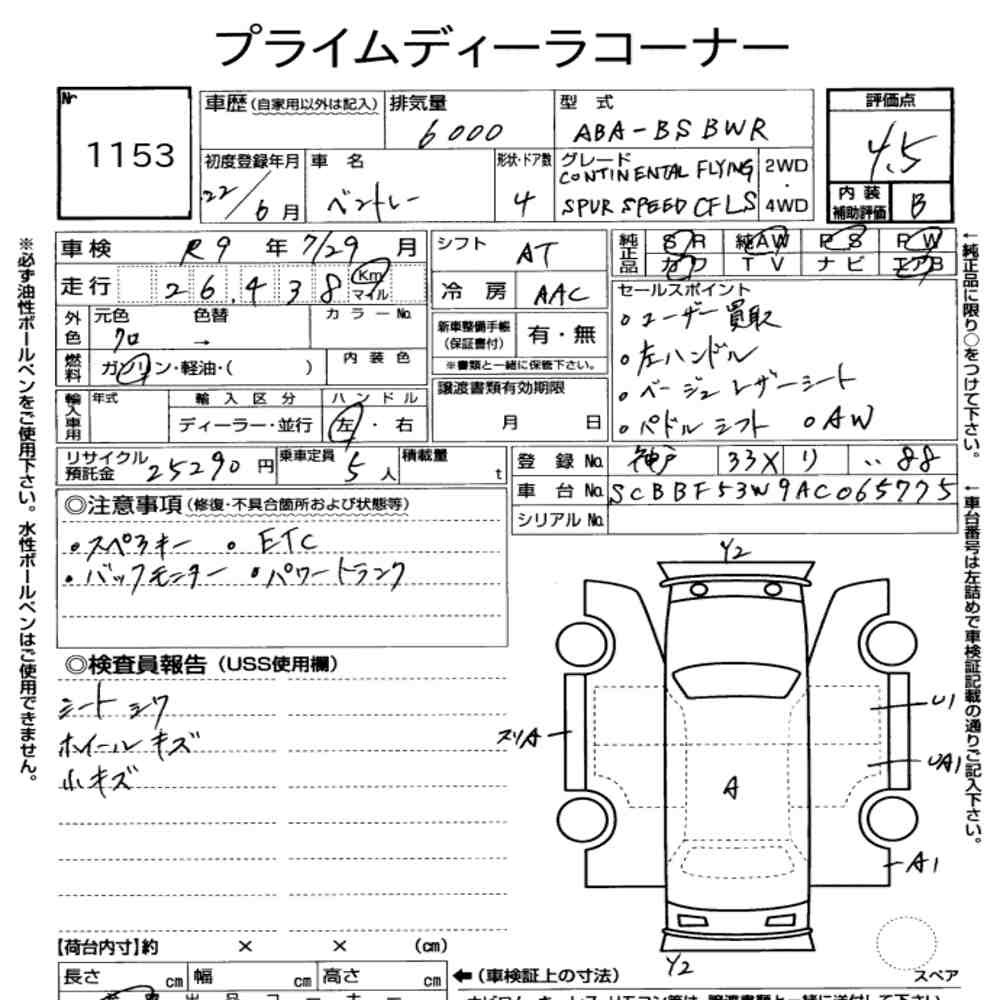 プライムディーラコーナー
№ 1153
車歴(自家用以外は記入) 排気量 6000
型式 ABA-BSBWR
評価点 4.5
初度登録年月 22/6月
車名 ベントレー
形状・ドア数 4
グレード CONTINENTAL FLYING
SPUR SPEED CFLS
2WD・4WD
内装補助評価 B
車検 R9年7/29月
シフト AT
純正品 SR 純AW PS PW
カワ TV ナビ エアB
走行 26,438 Km マイル
冷房 AAC
セールスポイント
。ユーザー買取
。左ハンドル
。ベージュレザーシート
。パドルシフト 。AW
外色 元色 クロ 色替 → カラーNo.
新車整備手帳(保証書付) 有・無
※書類と一緒に保管下さい。
燃料 ガソリン・軽油・( )
内装色
譲渡書類有効期限
月 日
輸入車用 年式 輸入区分 ハンドル
ディーラー・並行 左・右
リサイクル預託金 25290円
乗車定員 5人
積載量 t
登録No. 神戸 33X り ・・88
車台No. SCBBF53W9AC065775
シリアルNo.
◎注意事項(修復・不具合箇所および状態等)
・スペアキー 。ETC
・バックモニター ・パワートランク
◎検査員報告(USS使用欄)
シートシワ
ホイールキズ
小キズ
Y2
スリA
U1
UA1
A
A1
Y2
スペア
【荷台内寸】約 × × (cm)
長さ cm 幅 cm 高さ cm
←(車検証上の寸法)
※必ず油性ボールペンをご使用下さい。水性ボールペンはご使用できません。
←純正品に限り○をつけて下さい。
←車台番号は左詰めで車検証記載の通りご記入下さい。